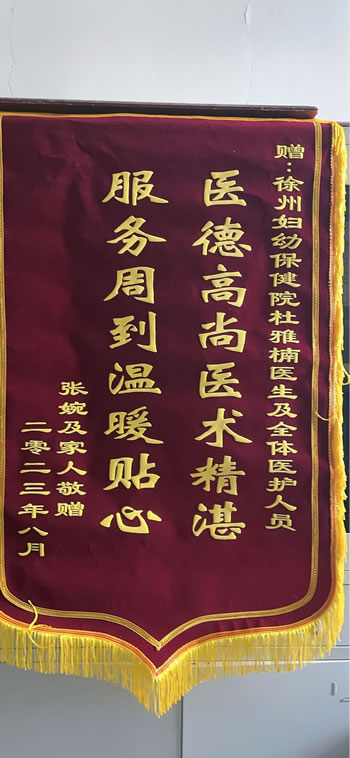 赠：徐州妇幼保健院杜雅楠医生及全体医护人员
医德高尚医术精湛
服务周到温暖贴心
张婉及家人敬赠
二零二三年八月